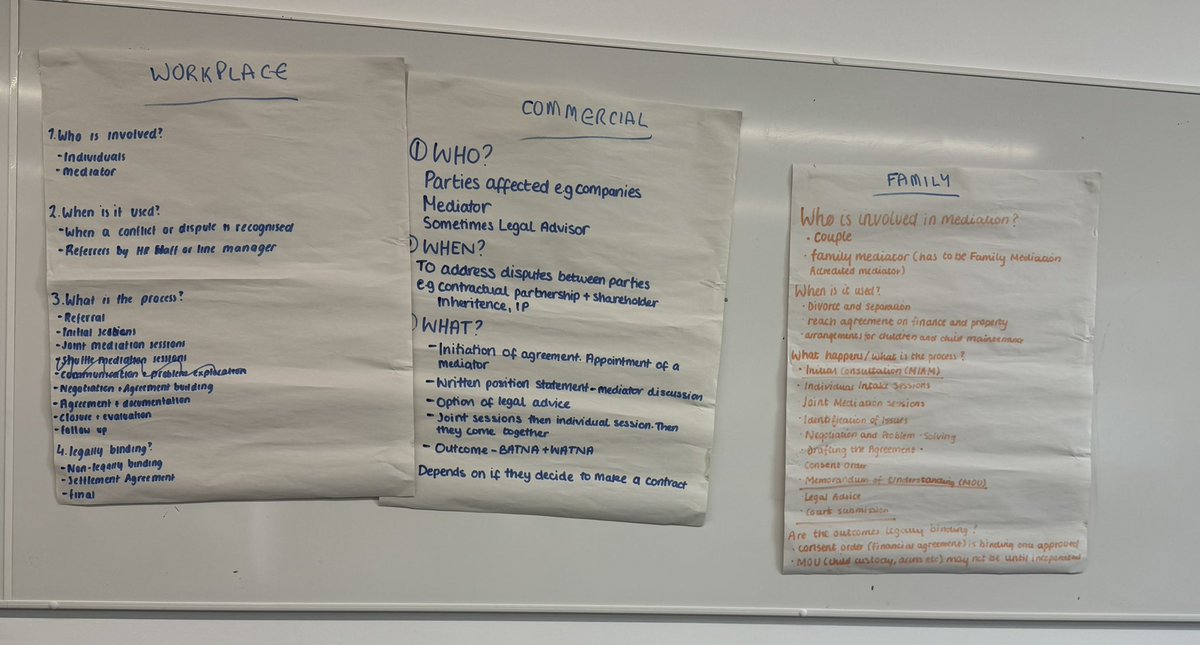 WORKPLACE
1. Who is involved?
- Individuals
- mediator
2. When is it used?
- When a conflict or dispute is recognised
- Referrers by HR staff or line manager
3. What is the process?
- Referral
- Initial sessions
- Joint mediation sessions
- Shuttle mediation sessions
- Communication + problem exploration
- Negotiation + Agreement building
- Agreement + documentation
- Closure + evaluation
- follow up
4. legally binding?
- Non-legally binding
- Settlement Agreement
- final
COMMERCIAL
① WHO?
Parties affected e.g companies
Mediator
Sometimes Legal Advisor
WHEN?
To address disputes between parties
e.g contractual partnership + shareholder
Inheritence, IP
WHAT?
- Initiation of agreement. Appointment of a
mediator
- Written position statement - mediator discussion
- Option of legal advice
- Joint sessions then individual session. Then
they come together
- Outcome - BATNA + WATNA
Depends on if they decide to make a contract
FAMILY
Who is involved in mediation?
· couple
· family mediator (has to be Family Mediation
Acredited mediator)
When is it used?
· Divorce and separation
· reach agreement on finance and property
· arrangements for children and child maintenance
What happens/what is the process?
· Initial Consultation (MIAM)
· Individual Intake Sessions
Joint Mediation sessions
· Identification of issues
· Negotiation and Problem-Solving
· Drafting the Agreement ·
· Consent order
· Memorandum of Understanding (MOU)
· Legal Advice
· Court submission
Are the outcomes legally binding?
· consent order (financial agreement) is binding once approved
· MOU (child custody, etc) may not be until incorporated